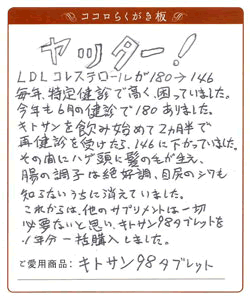 ココロらくがき板
ヤッター!
LDLコレステロールが180→146
毎年、特定健診で高く、困っていました。
今年も6月の健診で180ありました。
キトサンを飲み始めて2ヵ月半で
再健診を受けたら、146に下がっていました。
その間にハゲ頭に髪の毛が生え、
腸の調子は絶好調、目尻のシワも
知らないうちに消えていました。
これからは、他のサプリメントは一切
必要ないと思い、キトサン98タブレットを
1年分一括購入しました。
ご愛用商品: キトサン98タブレット